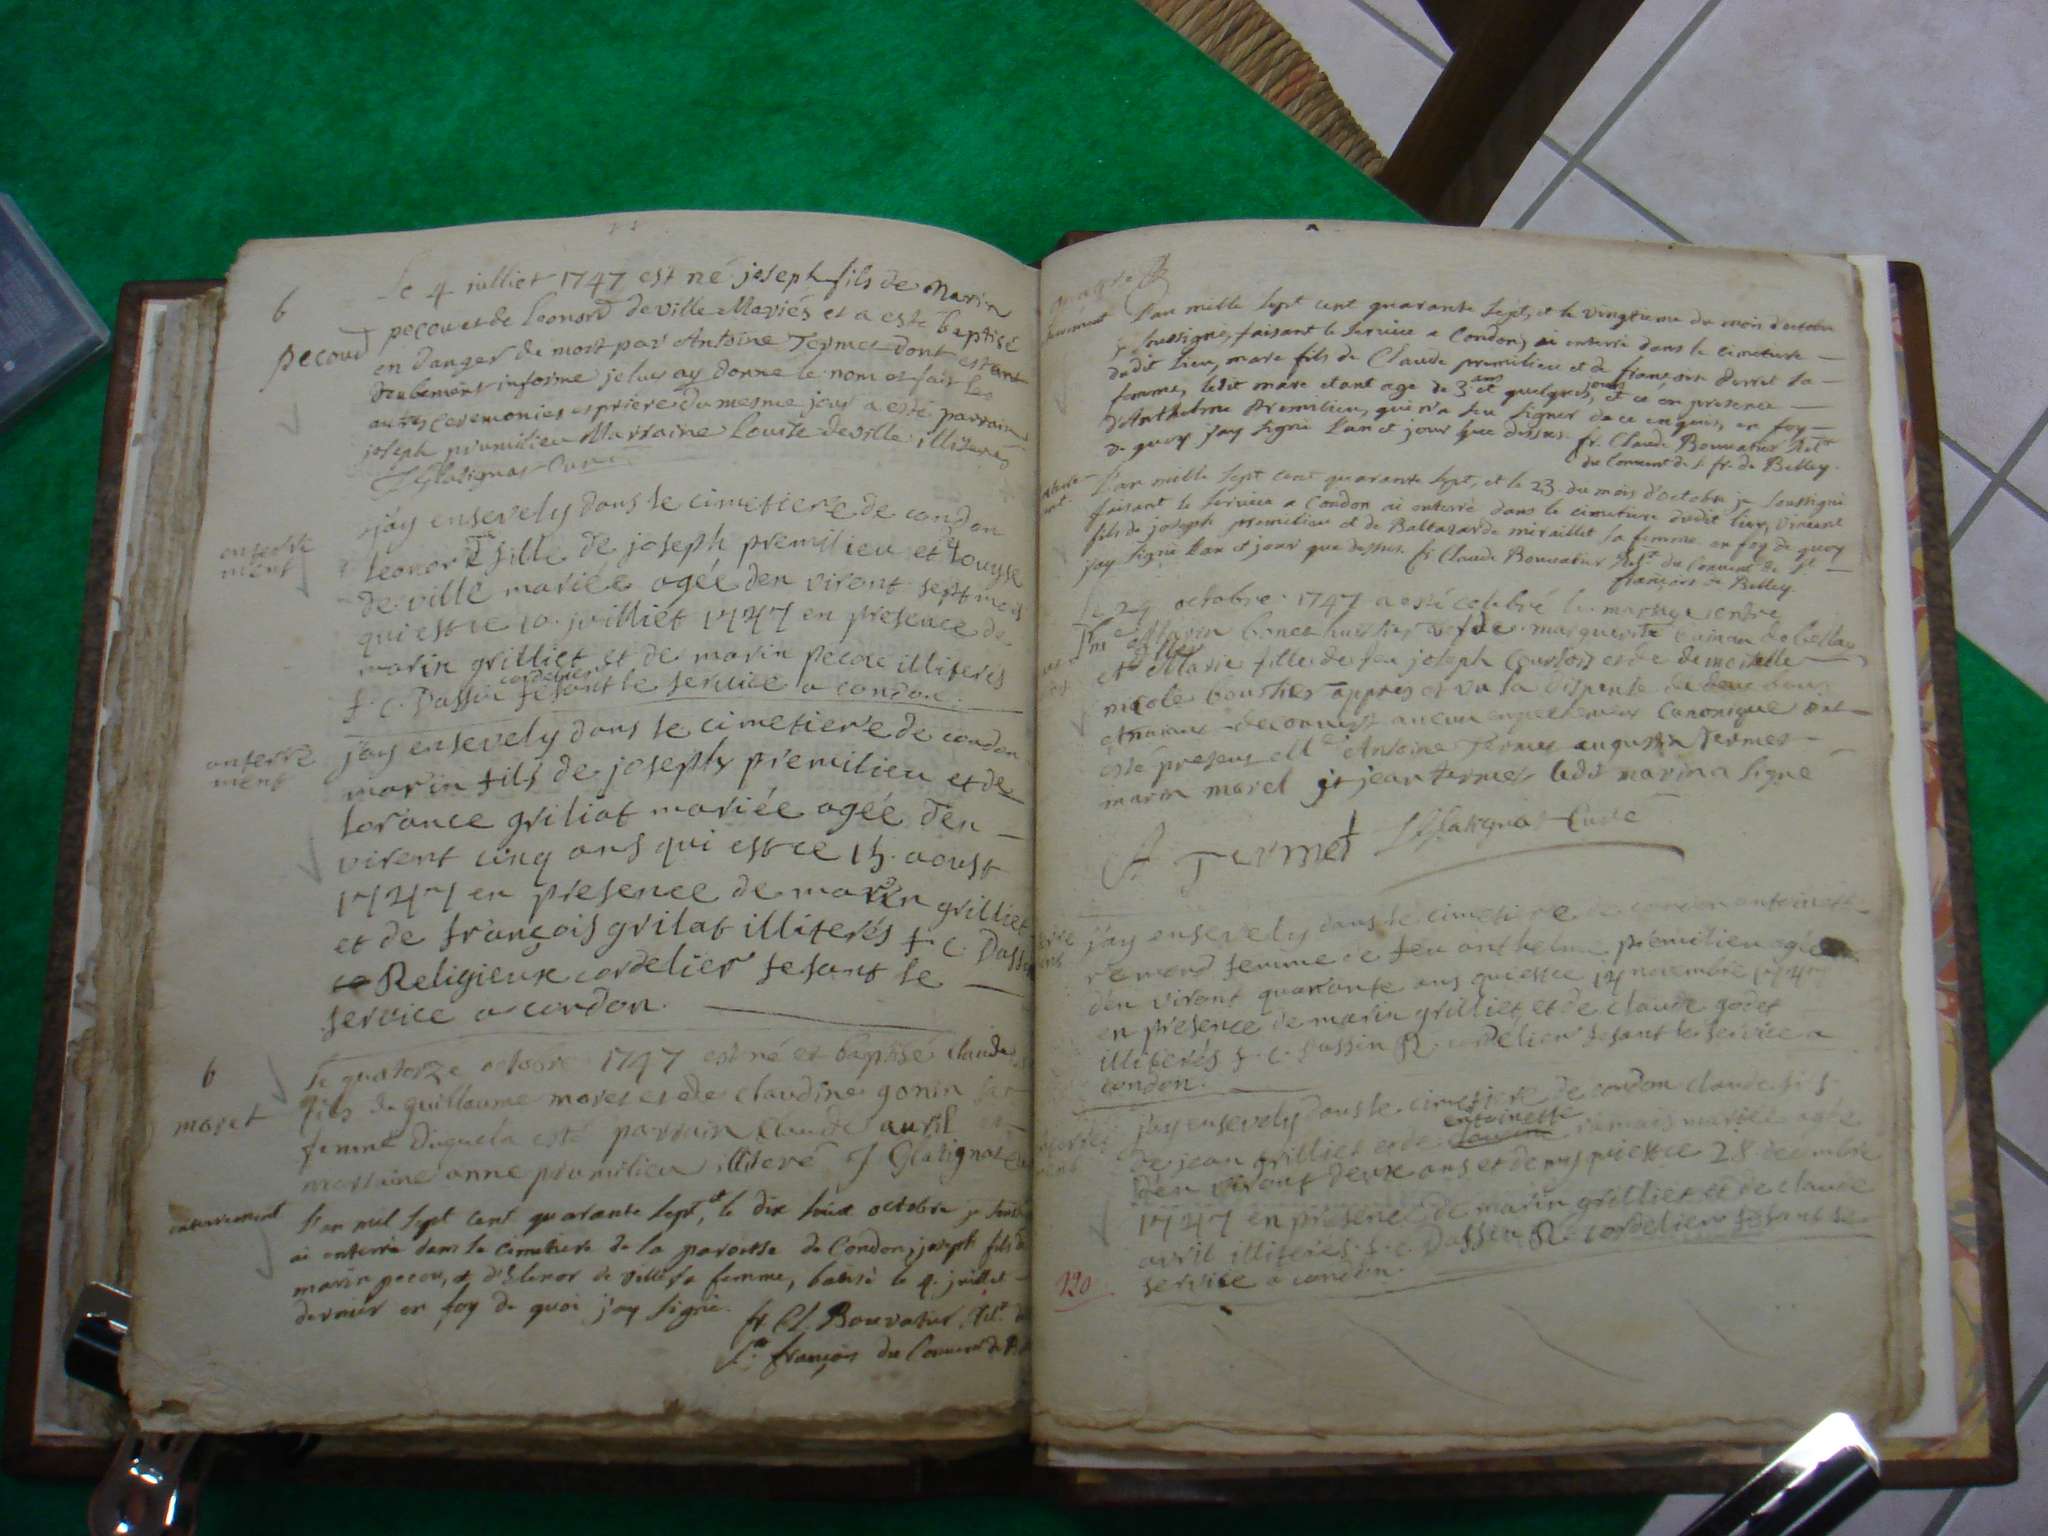 6
Le 4 julliet 1747 est né joseph fils de Marin
pecoud
pecou et de Leonord deville Mariés et a esté baptisé
en danger de mort par Antoine Termet dont estant
deubement informé je luy ay donné le nom et fait les
autres ceremonies et priere du mesme jour a esté parrain
joseph prumilieu Marraine Louise deville illiterés
J Glatignat Curé
enterre
ment
j'ay ensevely dans le cimetiere de condon
Leonorde fille de joseph premilieu et de Louyse
de ville mariée agée den viront sept mois
qui est ce 10 juilliet 1747 en presence de
marin grilliet et de marin pecou illiterés
f. c. Dassin cordelier fesant le service a condon.
enterre
ment
j'ay ensevely dans le cimetiere de condon
marin fils de joseph premilieu et de
lorance griliat mariée agée d'en
viront cinq ans qui est ce 15. aoust
1747 en presence de marin grilliet
et de françois grilat illiterés f. c. Dassin
Religieux cordelier fesant le
service a condon.
6
moret
le quatorze octobre 1747 est né et baptisé Claude
fils de guillaume moret et de claudine gonin sa
femme duquel a esté parrain Claude avril et
marraine anne prumilieu illiteré J Glatignat
enterrement
L'an mil sept cent quarante sept, et le dix huit octobre je
ai enterré dans le cimetiere de la paroisse de Condon, joseph fils de
marin pecou, et d'Elenor de Ville sa femme, batisé le 4. juillet
dernier en foy de quoi j'ay signé.
fr. Cl. Bouvatier, Rel.
St. françois du Couvent de
L'an mille sept cent quarante sept, et le vingtieme du mois d'octobre
je soussigné, faisant le service a Condon, ai enterré dans le cimetiere
dudit lieu, marc fils de Claude premilieu et de françoise Perret sa
femme, ledit marc etant agé de 3 ans et quelques jours, et ce en presence
d'Anthelme Premilieu, qui n'a seu signer de ce enquis, en foy
de quoy j'ay signé l'an et jour que dessus. fr. Claude Bouvatier Relt
du Couvent de s. fr. de Belley.
L'an mille sept cent quarante sept, et le 23 du mois d'octobre je soussigné
faisant le service a Condon ai enterré dans le cimetiere dudit lieu, Vincent
fils de joseph premilieu et de Baltazarde miraillet sa femme en foy de quoy
j'ay signé l'an et jour que dessus. fr Claude Bouvatier Relt. du Couvent de St
françois de Belley.
octobre 1747 a esté celebré le mariage entre
et Marie fille de feu joseph Courtois et de demoiselle
nicole apprés et vu la dispense de deux bans
aucun enpechement Canonique ont
esté presens Antoine Termet augustin Termet
marin marel et jean termet ledit marin a signé
A Termet J Glatignat Curé
j'ay ensevely dans le cimetiere de condon antoinette
remond femme de feu anthelme premilieu agée
den viront quarante ans qui est ce 14 novembre 1747
en presence de marin grilliet et de claude godet
illiterés f. c. Dassin R. cordelier fesant le service a
condon.
j'ay ensevely dans le cimetiere de condon claude fils
de jean grilliet et de antoinette ramais mariée agée
den viront deux ans et demy qui est ce 28 decembre
1747 en presence de marin grilliet et de claude
avril illiterés f. c. Dassin R. cordelier fesant le
service a condon.
120